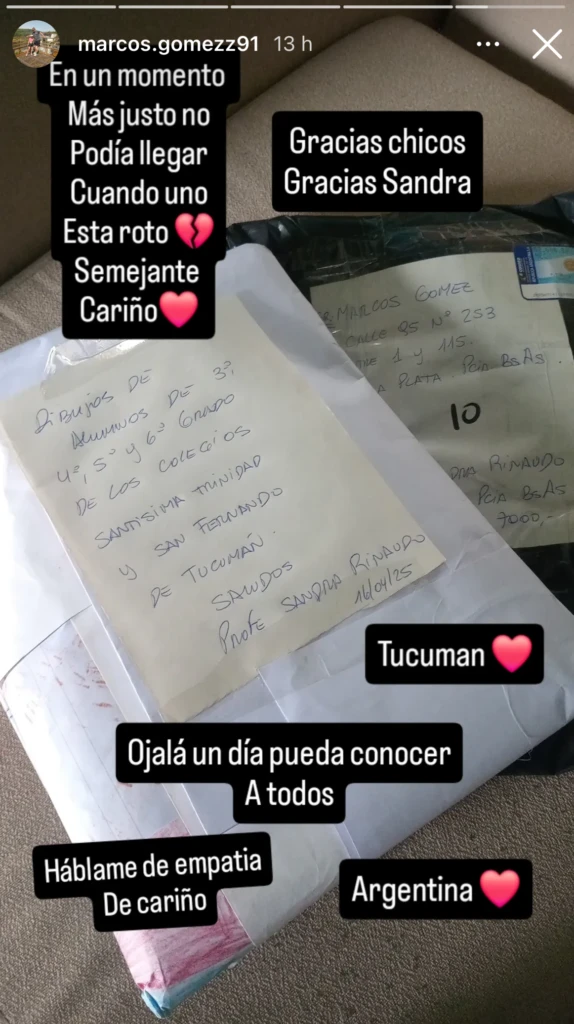 marcos.gomezz91 13 h
En un momento
Más justo no
Podía llegar
Cuando uno
Esta roto 💔
Semejante
Cariño❤️
Gracias chicos
Gracias Sandra
MARCOS GOMEZ
CALLE 35 Nº 253
1 y 115.
PLATA. PCIA BSAS.
10
RINAUDO
PCIA BSAS
7000,-
DIBUJOS DE
ALUMNOS DE 3º,
4º, 5º y 6º GRADO
DE LOS COLEGIOS
SANTISIMA TRINIDAD
y SAN FERNANDO
DE TUCUMÁN.
SALUDOS
PROFE SANDRA RINAUDO
16/04/25
Tucuman ❤️
Ojalá un día pueda conocer
A todos
Háblame de empatia
De cariño
Argentina ❤️